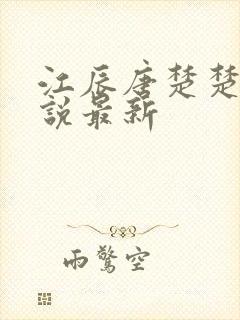 江辰唐楚楚
說最新
雨驚空